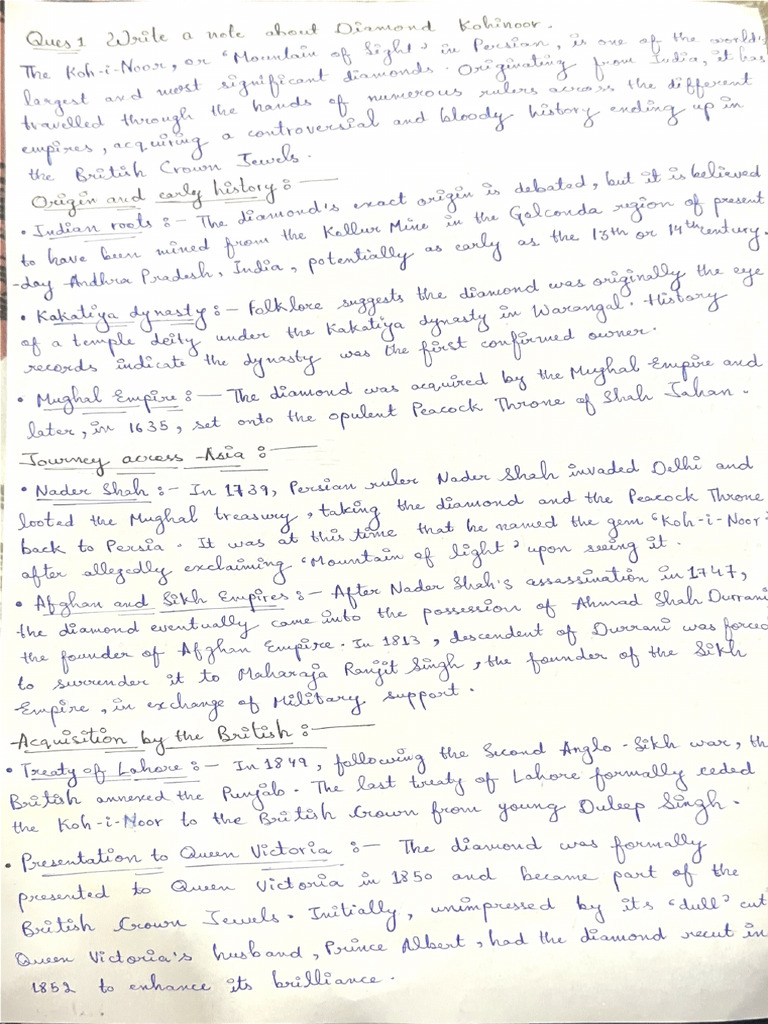 Ques 1 Write a note about Diamond Kohinoor.
The Koh-i-Noor, or 'Mountain of Light' in Persian, is one of the world's
largest and most significant diamonds. Originating from India, it has
travelled through the hands of numerous rulers across the different
empires, acquiring a controversial and bloody history ending up in
the British Crown Jewels.
Origin and early history :—
• Indian roots :- The diamond's exact origin is debated, but it is believed
to have been mined from the Kollur Mine in the Golconda region of present
-day Andhra Pradesh, India, potentially as early as the 13th or 14th century.
• Kakatiya dynasty :- Folklore suggests the diamond was originally the eye
of a temple deity under the Kakatiya dynasty in Warangal. History
records indicate the dynasty was the first confirmed owner.
• Mughal Empire :— The diamond was acquired by the Mughal Empire and
later, in 1635, set onto the opulent Peacock Throne of Shah Jahan.
Journey across Asia :—
• Nader Shah :- In 1739, Persian ruler Nader Shah invaded Delhi and
looted the Mughal treasury, taking the diamond and the Peacock Throne
back to Persia. It was at this time that he named the gem 'Koh-i-Noor'
after allegedly exclaiming 'Mountain of light' upon seeing it.
• Afghan and Sikh Empires :- After Nader Shah's assassination in 1747,
the diamond eventually came into the possession of Ahmad Shah Durrani
the founder of Afghan Empire. In 1813, descendent of Durrani was forced
to surrender it to Maharaja Ranjit Singh, the founder of the Sikh
Empire, in exchange of Military support.
Acquisition by the British :—
• Treaty of Lahore :- In 1849, following the Second Anglo-Sikh war, th
British annexed the Punjab. The last treaty of Lahore formally ceded
the Koh-i-Noor to the British Crown from young Duleep Singh.
• Presentation to Queen Victoria :— The diamond was formally
presented to Queen Victoria in 1850 and became part of the
British Crown Jewels. Initially, unimpressed by its 'dull' cut
Queen Victoria's husband, Prince Albert, had the diamond recut in
1852 to enhance its brilliance.